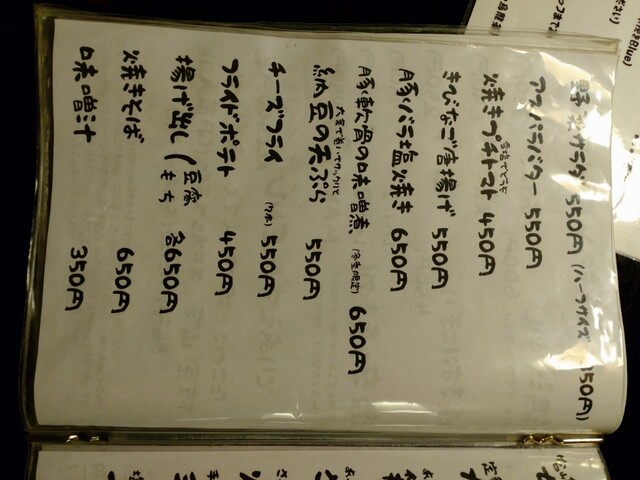 サラダ 550円 (ハーフサイズ 350円)
アスパラバター 550円
焼きプチトマト 450円
きびなご唐揚げ 550円
豚バラ塩焼き 650円
豚軟骨の味噌煮 650円
納豆の天ぷら 550円
チーズフライ 550円
フライドポテト 450円
揚げ出し (豆腐 もち 各650円
焼きそば 650円
味噌汁 350円